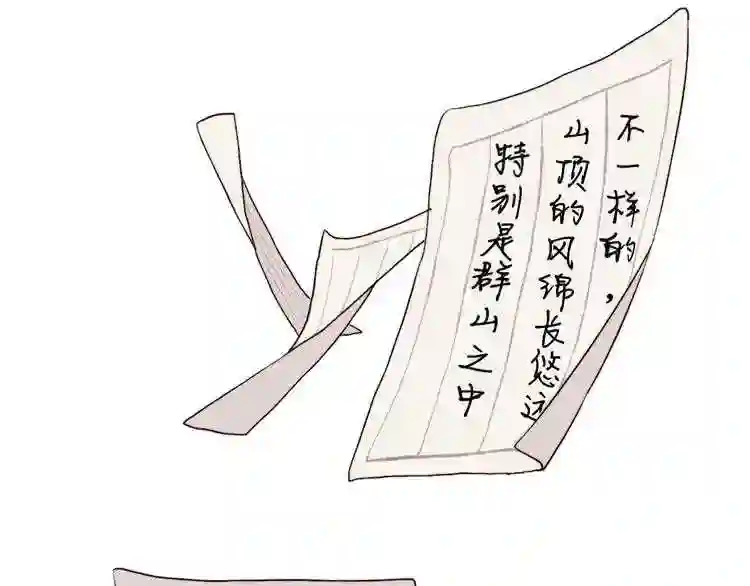 不一样的，
山顶的风绵长悠远
特别是群山之中